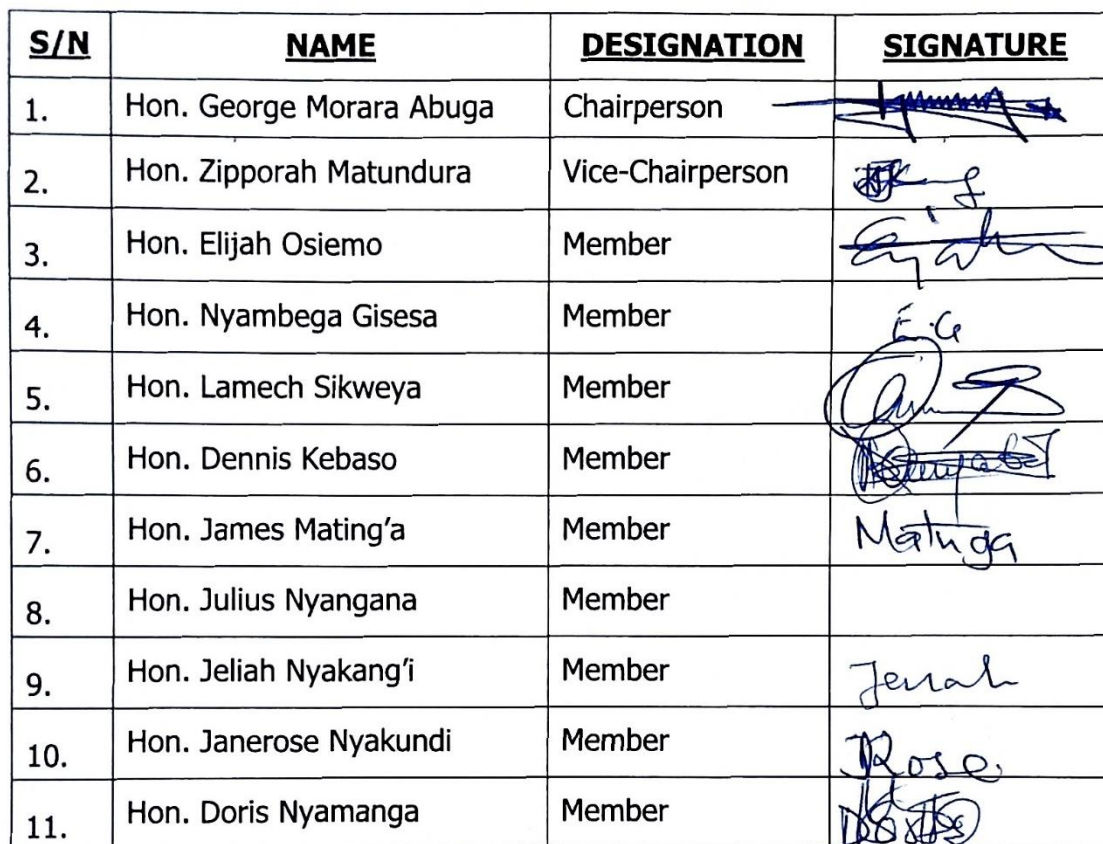 S/N NAME DESIGNATION SIGNATURE
1. Hon. George Morara Abuga Chairperson
2. Hon. Zipporah Matundura Vice-Chairperson
3. Hon. Elijah Osiemo Member
4. Hon. Nyambega Gisesa Member E.G
5. Hon. Lamech Sikweya Member
6. Hon. Dennis Kebaso Member
7. Hon. James Mating'a Member Matinga
8. Hon. Julius Nyangana Member
9. Hon. Jeliah Nyakang'i Member
10. Hon. Janerose Nyakundi Member Rose
11. Hon. Doris Nyamanga Member